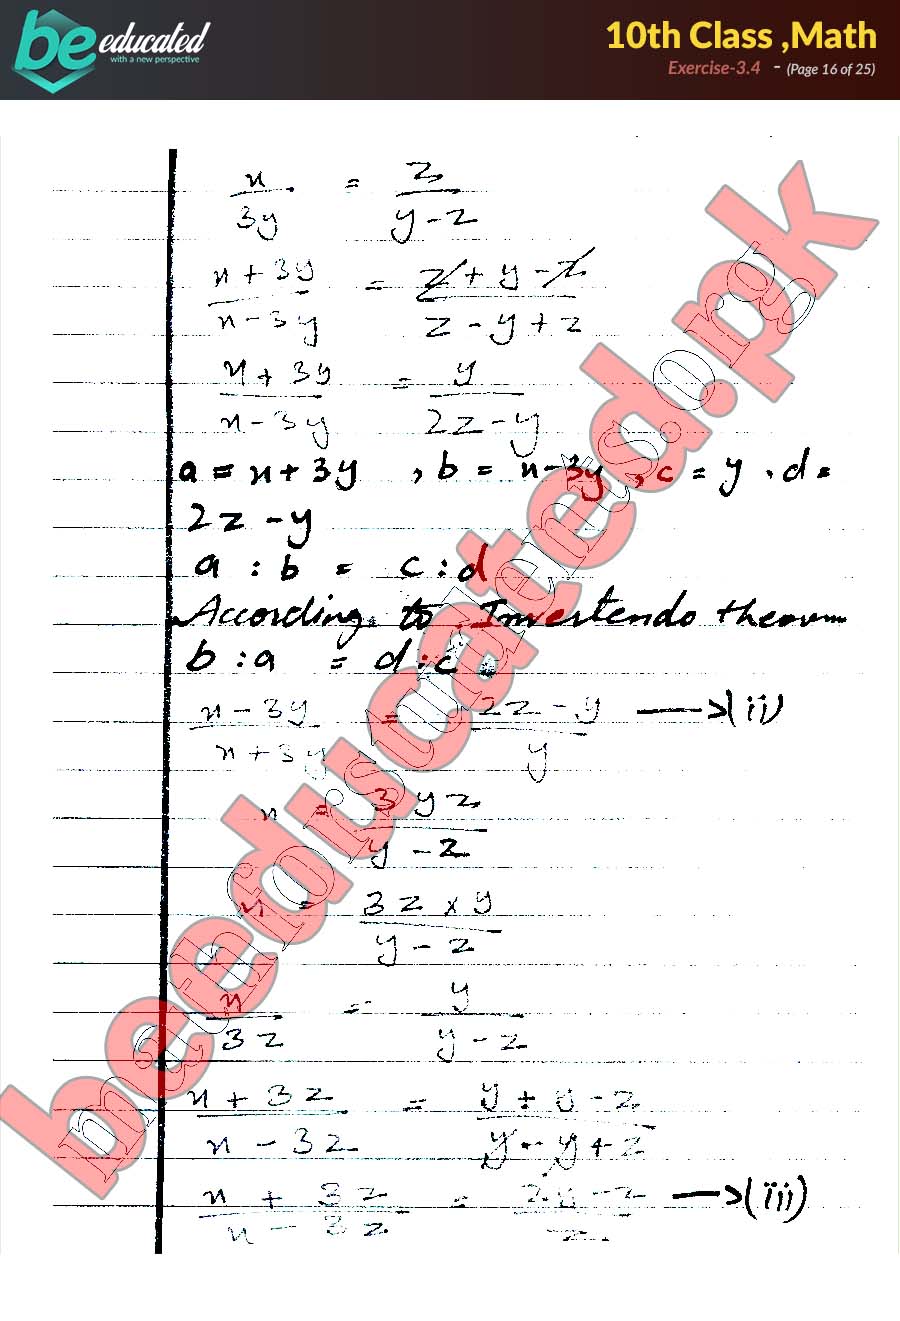 be educated
with a new perspective
10th Class ,Math
Exercise-3.4 - (Page 16 of 25)
x/3y = z/y-z
x+3y/x-3y = z+y-z/z-y+z
x+3y/x-3y = y/2z-y
a = x+3y , b = x-3y , c = y , d =
2z-y
a : b = c : d
According to Invertendo theorum
b : a = d : c
x-3y/x+3y = 2z-y/y →(ii)
x = 3yz/y-z
x = 3z×y/y-z
x/3z = y/y-z
x+3z/x-3z = y+y-z/y-y+z
x+3z/x-3z = 2y-z/z →(iii)
beeducated.pk